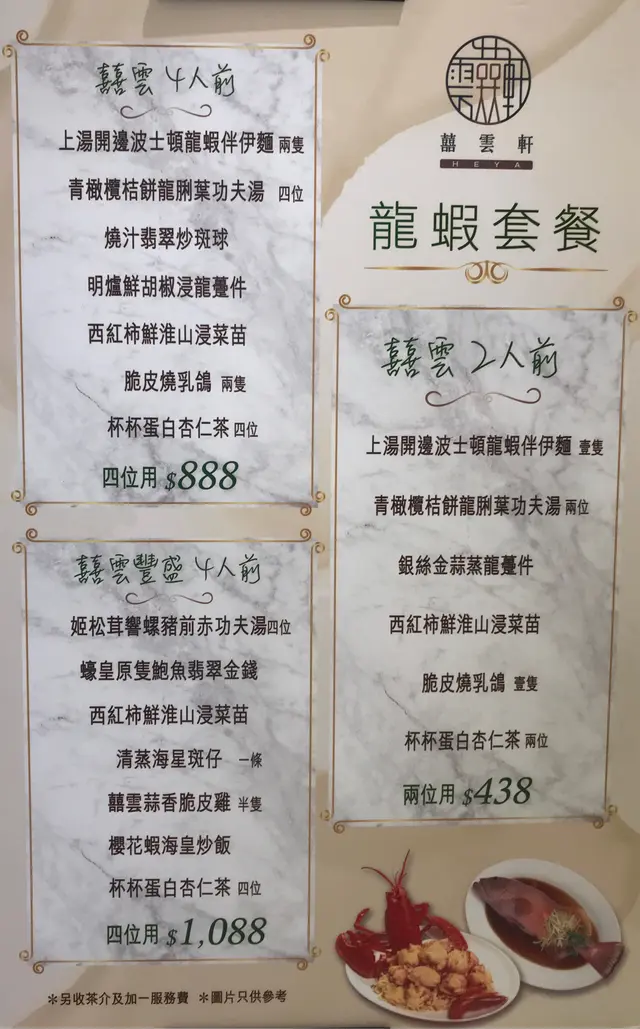 囍雲軒
HEYA
龍蝦套餐
囍雲 4人前
上湯開邊波士頓龍蝦伴伊麵 兩隻
青橄欖桔餅龍脷葉功夫湯 四位
燒汁翡翠炒斑球
明爐鮮胡椒浸龍躉件
西紅柿鮮淮山浸菜苗
脆皮燒乳鴿 兩隻
杯杯蛋白杏仁茶 四位
四位用 $888
囍雲豐盛 4人前
姬松茸響螺豬前赤功夫湯四位
蠔皇原隻鮑魚翡翠金錢
西紅柿鮮淮山浸菜苗
清蒸海星斑仔 一條
囍雲蒜香脆皮雞 半隻
櫻花蝦海皇炒飯
杯杯蛋白杏仁茶 四位
四位用 $1,088
囍雲 2人前
上湯開邊波士頓龍蝦伴伊麵 壹隻
青橄欖桔餅龍脷葉功夫湯 兩位
銀絲金蒜蒸龍躉件
西紅柿鮮淮山浸菜苗
脆皮燒乳鴿 壹隻
杯杯蛋白杏仁茶 兩位
兩位用 $438
＊另收茶介及加一服務費 ＊圖片只供參考